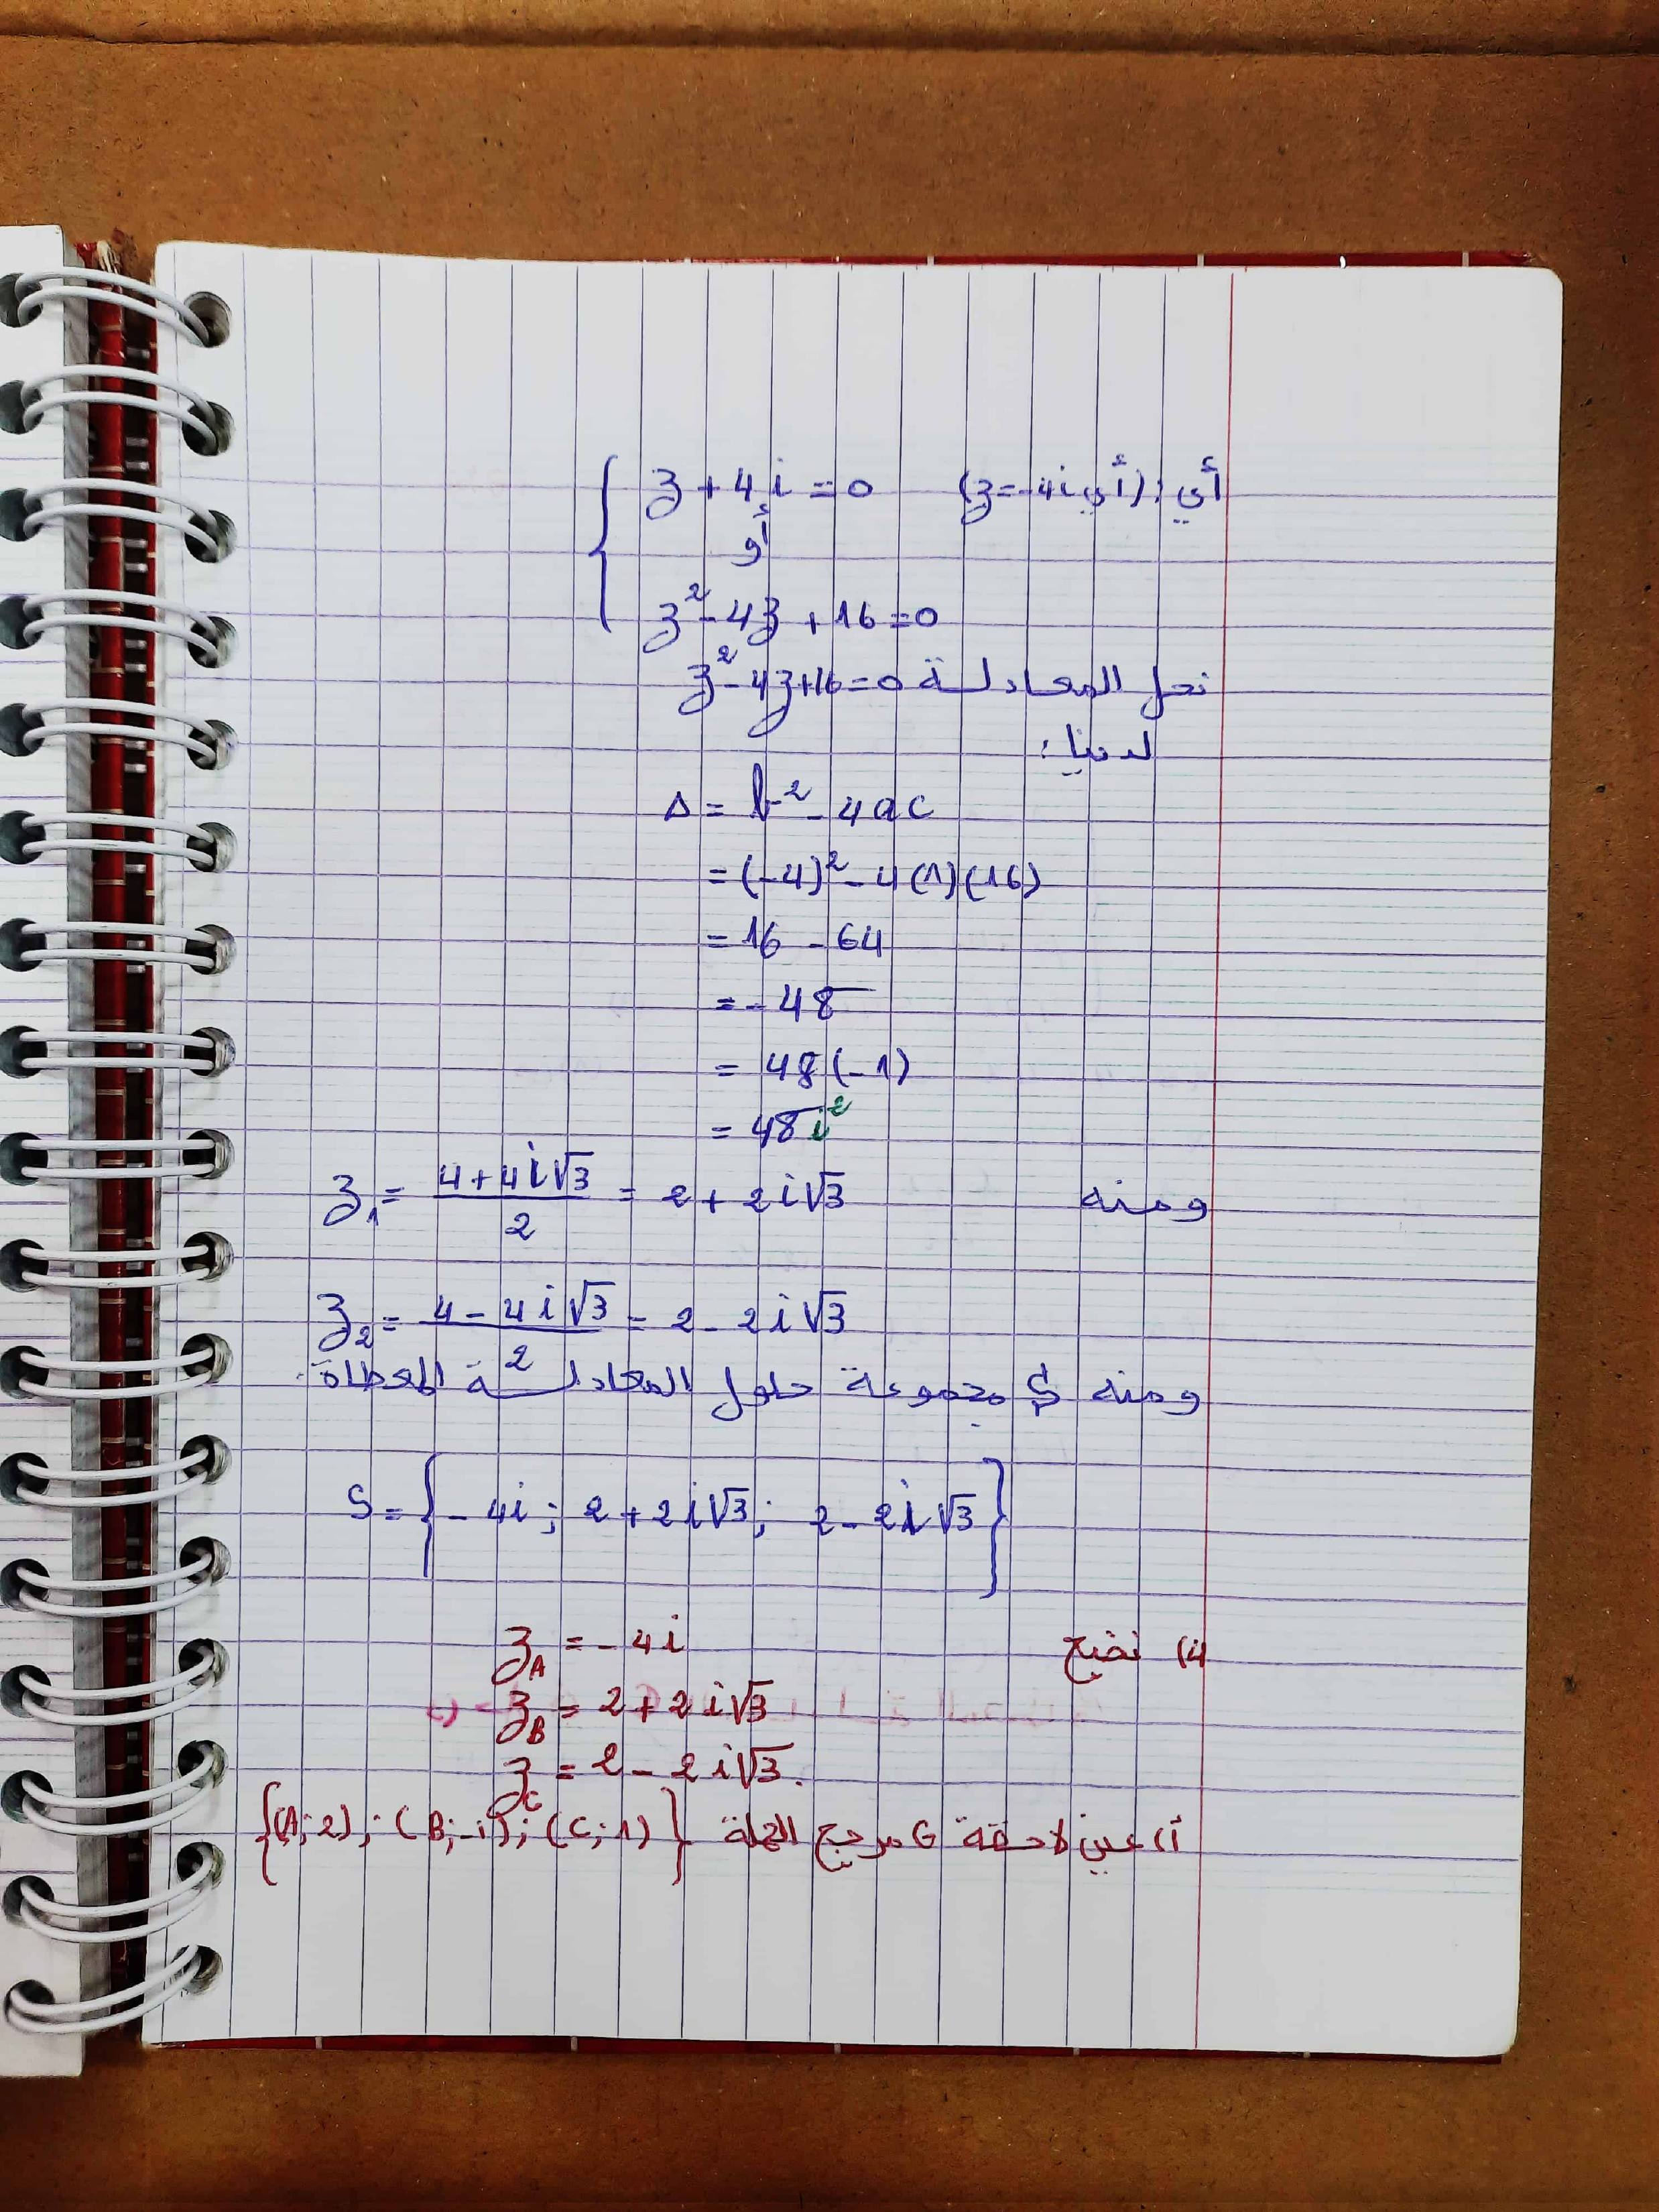 أي: (أي z=-4i) z + 4i = 0
أو
z² - 4z + 16 = 0
نحل المعادلة z² - 4z + 16 = 0
لدينا:
Δ = b² - 4ac
= (-4)² - 4(1)(16)
= 16 - 64
= -48
= 48(-1)
= 48i²
ومنه z₁ = (4+4i√3)/2 = 2 + 2i√3
z₂ = (4 - 4i√3)/2 = 2 - 2i√3
ومنه S مجموعة حلول المعادلة المعطاة.
S = { -4i ; 2 + 2i√3 ; 2 - 2i√3 }
4) نضع z_A = -4i
z_B = 2 + 2i√3
z_C = 2 - 2i√3.
أ) عين لاحقة G مرجح الجملة {(A;2);(B;-1);(C;1)}